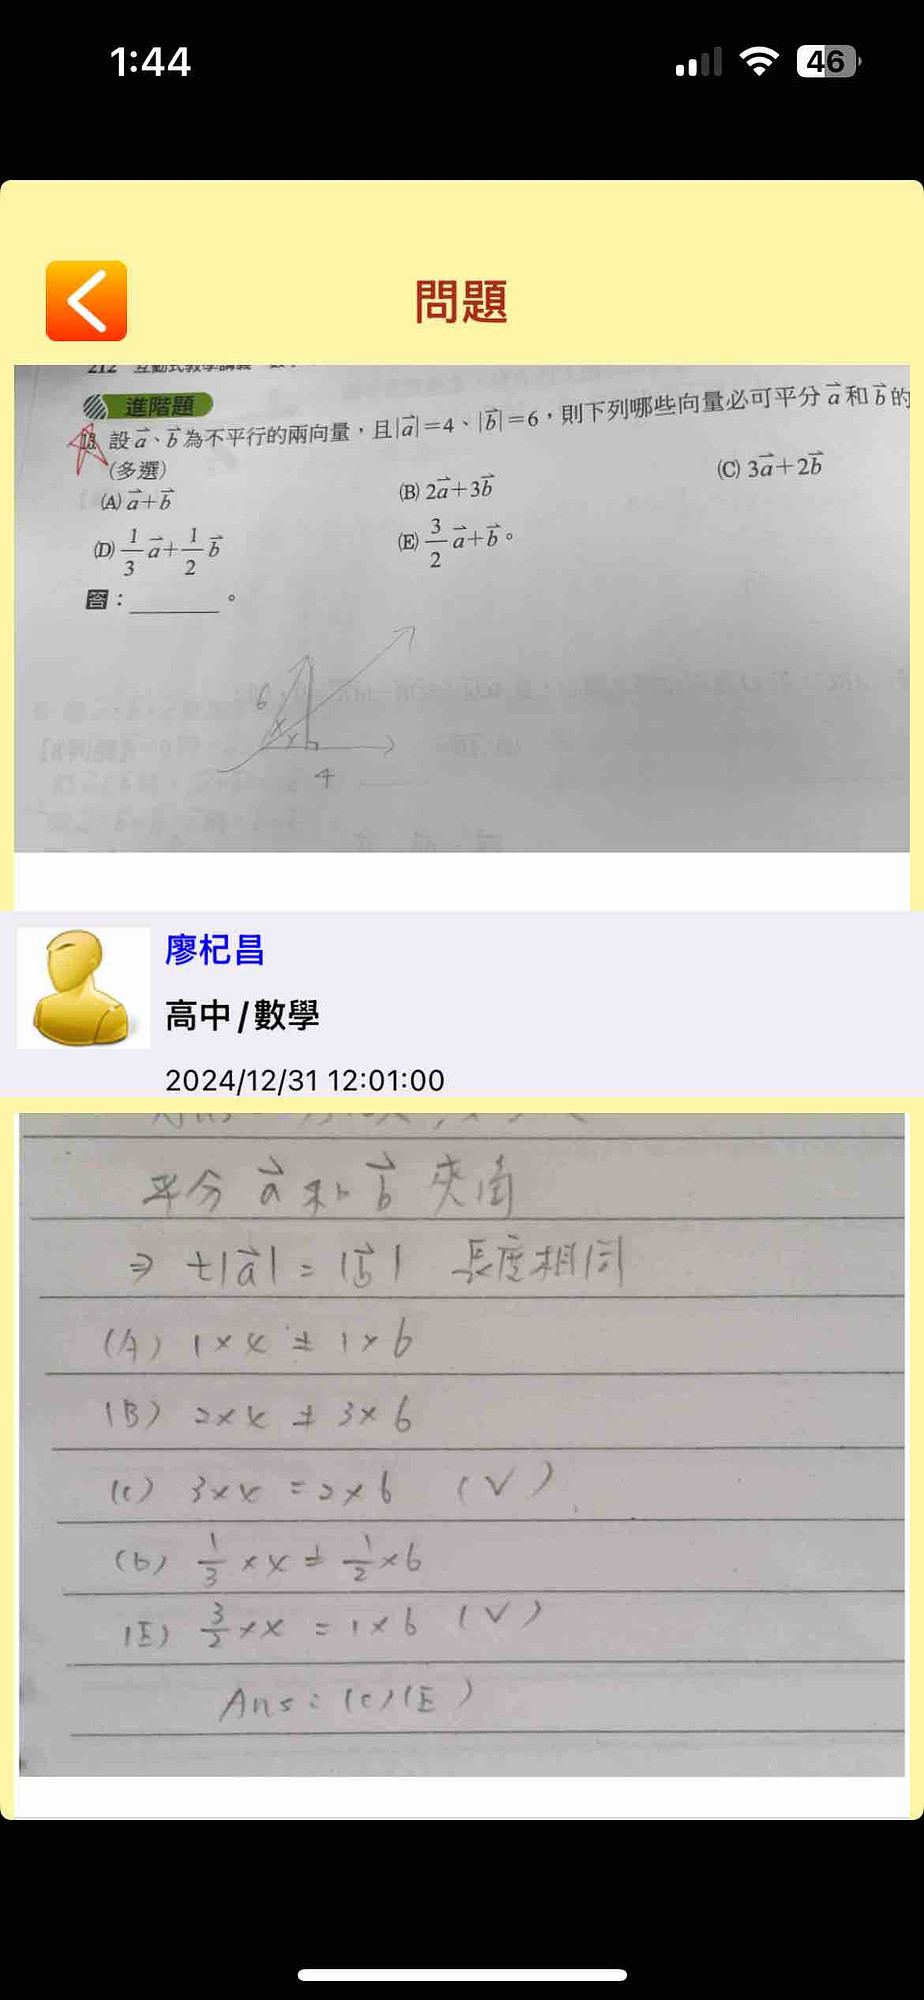 1:44
46
問題
212 互動式教學講義
進階題
13. 設 a⃗、b⃗ 為不平行的兩向量，且|a⃗|=4、|b⃗|=6，則下列哪些向量必可平分 a⃗ 和 b⃗ 的
(多選)
(A) a⃗+b⃗ (B) 2a⃗+3b⃗ (C) 3a⃗+2b⃗
(D) 1/3 a⃗+1/2 b⃗ (E) 3/2 a⃗+b⃗。
答：________。
6
4
廖杞昌
高中/數學
2024/12/31 12:01:00
平分 a⃗ 和 b⃗ 夾角
⇒ t|a⃗| = |b⃗| 長度相同
(A) 1×4 ≠ 1×6
(B) 2×4 ≠ 3×6
(c) 3×4 = 2×6 (V)
(D) 1/3 ×4 ≠ 1/2 ×6
(E) 3/2 ×4 = 1×6 (V)
Ans: (c)(E)